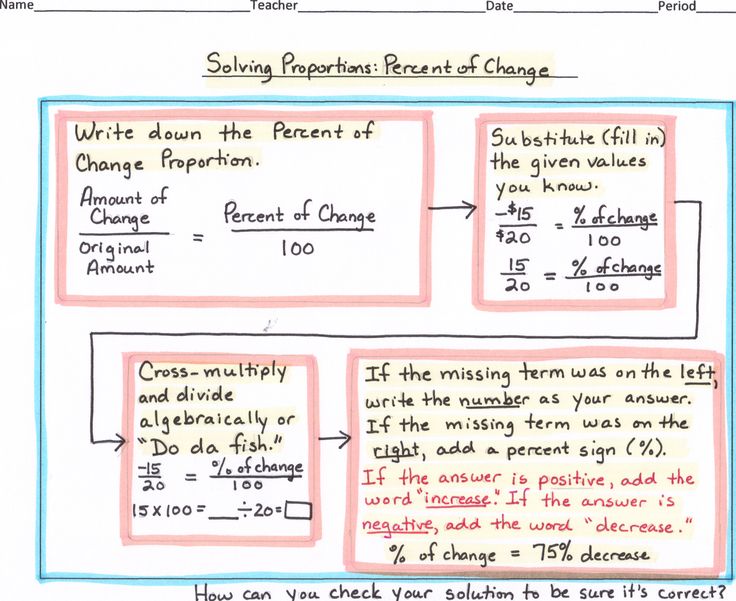 Name Teacher Date Period
Solving Proportions: Percent of Change
Write down the Percent of
Change Proportion.
Amount of
Change
Original
Amount
=
Percent of Change
100
Substitute (fill in)
the given values
you know.
-$15 = % of change
$20 100
15 = % of change
20 100
Cross-multiply
and divide
algebraically or
"Do da fish."
-15 = % of change
20 100
15 x 100 = ___ ÷ 20 = □
If the missing term was on the left,
write the number as your answer.
If the missing term was on the
right, add a percent sign (%).
If the answer is positive, add the
word "increase." If the answer is
negative, add the word "decrease."
% of change = 75% decrease
How can you check your solution to be sure it's correct?